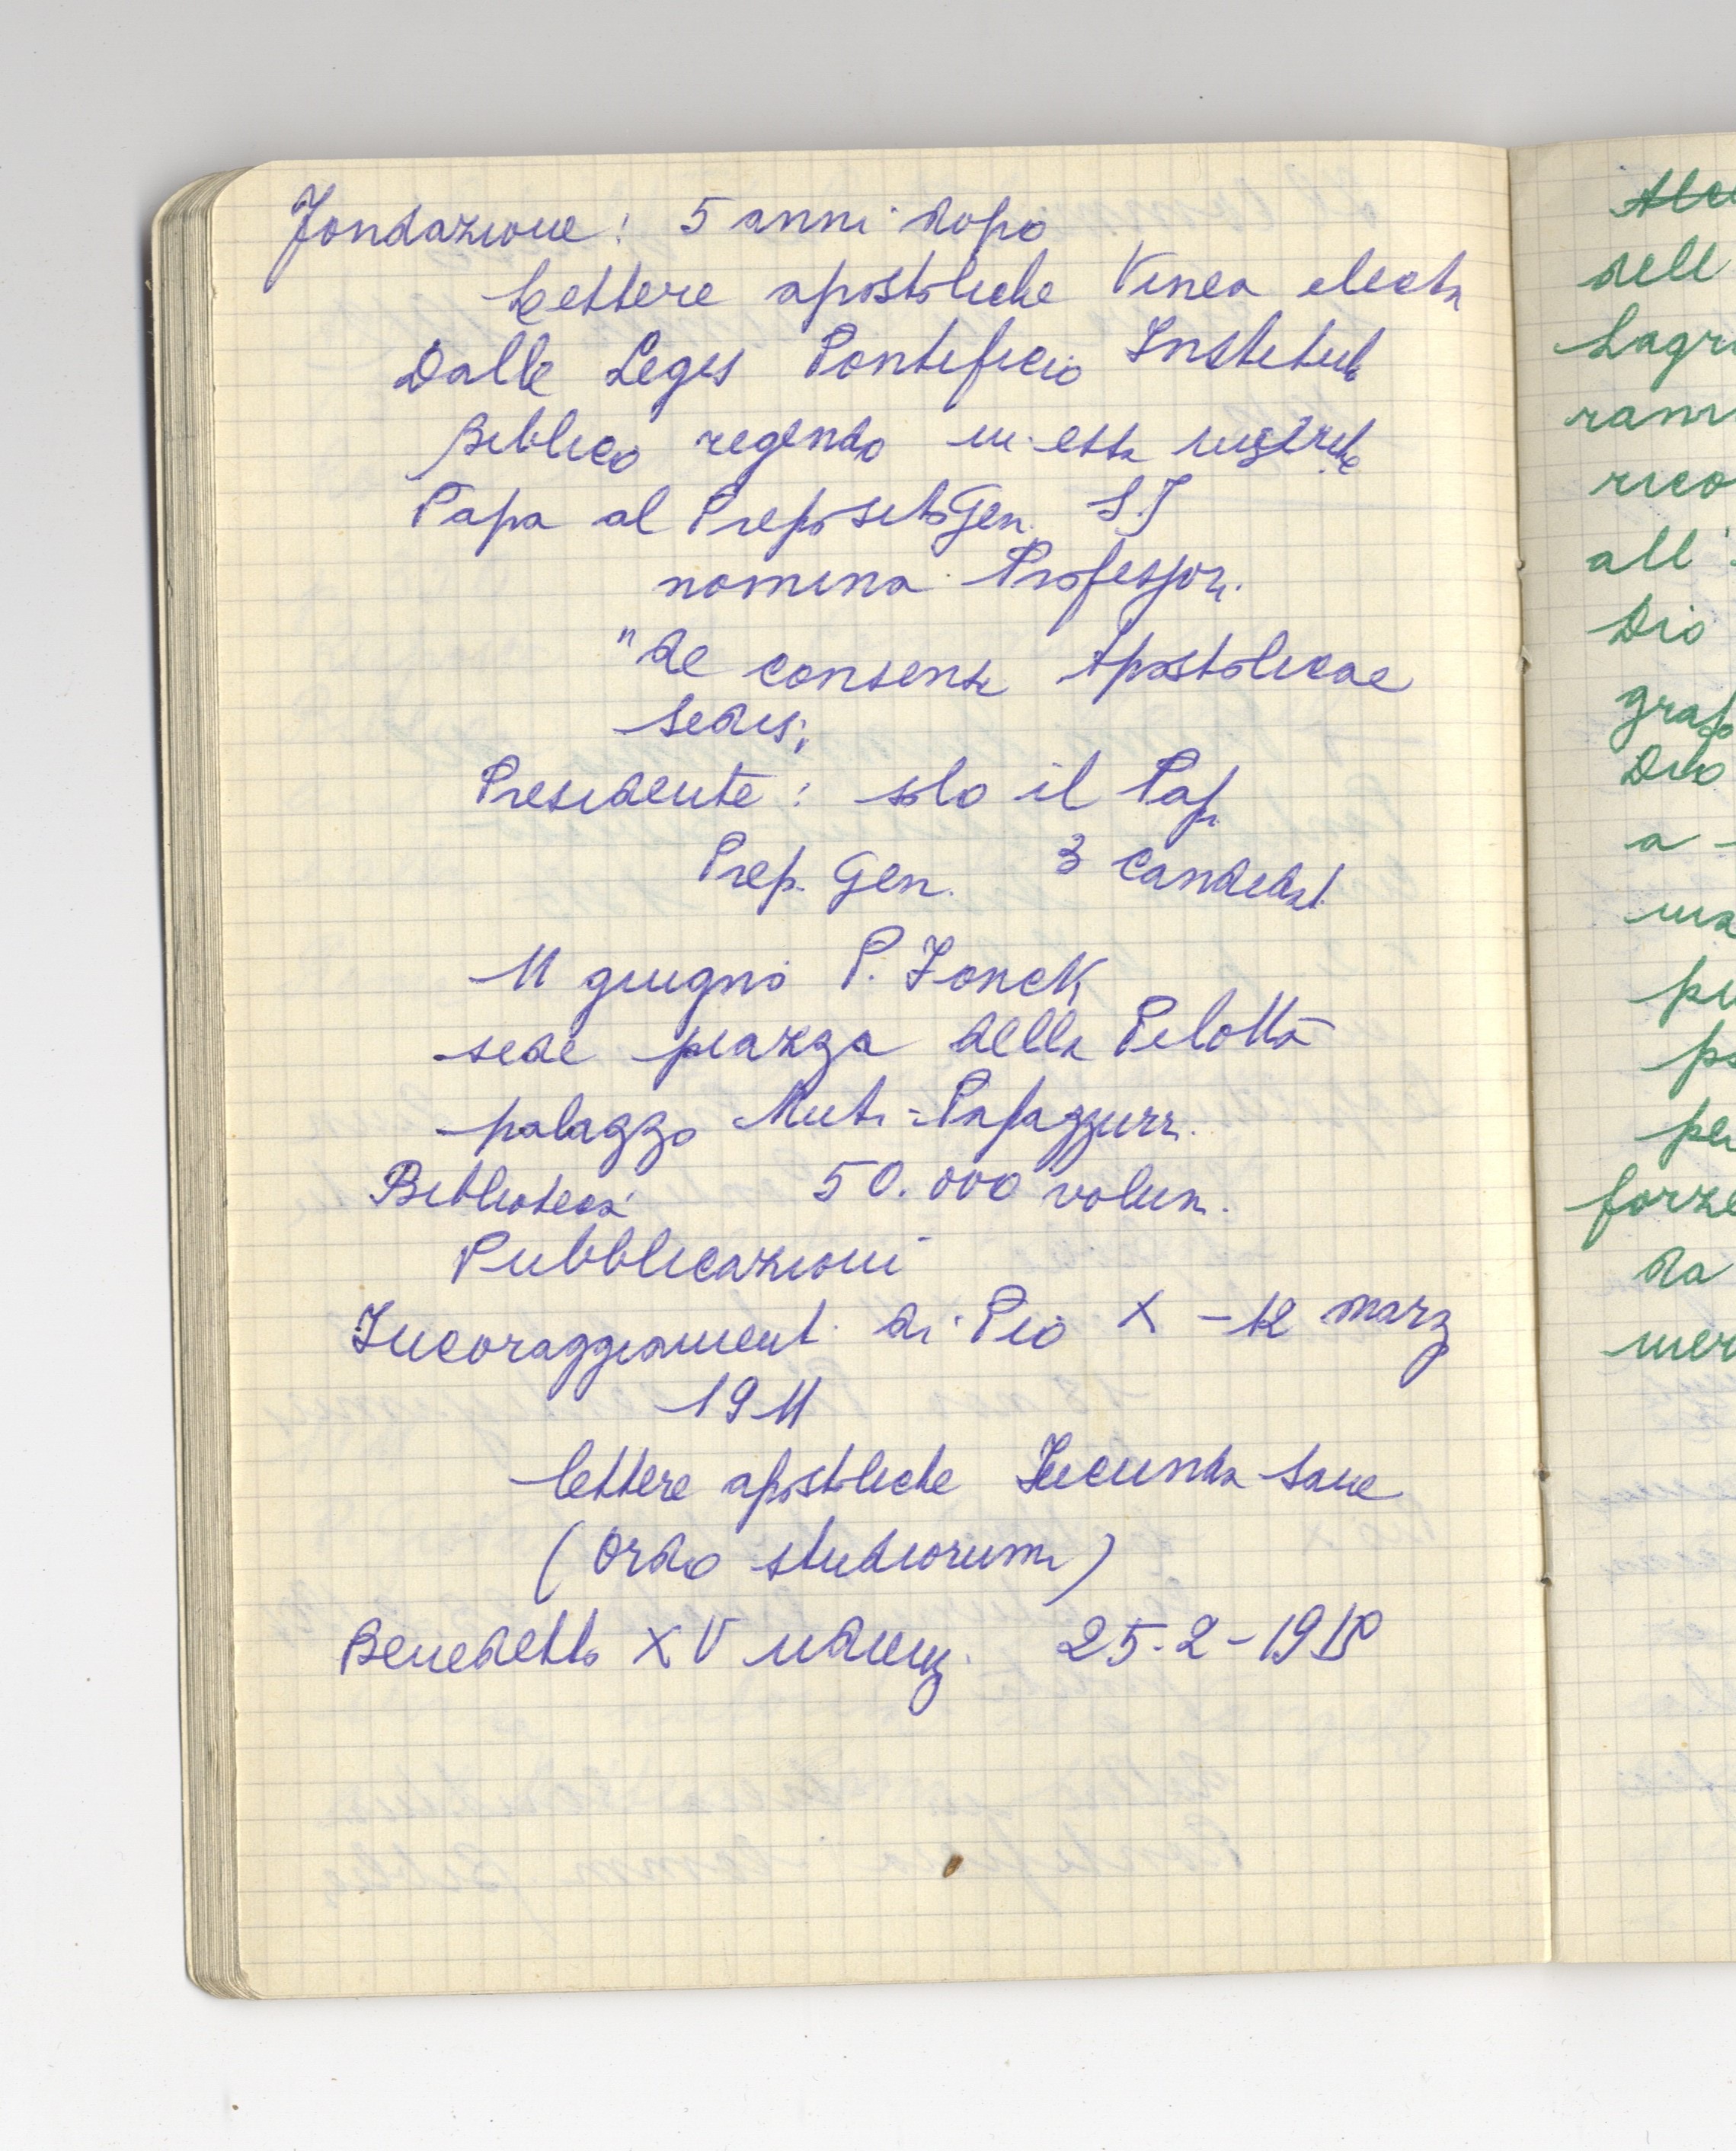 Fondazione: 5 anni dopo
Lettere apostoliche Vinea electa
Dalle Leges Pontificio Instituto
Biblico regendo in essa inserite
Papa al Preposito Gen. S.J
nomina Professori.
"de consensu Apostolicae
Sedis;
Presidente: solo il Papa
Prep. Gen. 3 candidat.
11 giugno P. Fonck
sede piazza della Pilotta
palazzo Muti-Papazzurri.
Biblioteca 50.000 volum.
Pubblicazioni
Incoraggiament. di Pio X - 12 marz
1911
lettere apostoliche Iucunda sane
(Ordo studiorum)
Benedetto XV udienz. 25-2-1918
dell
Lagri
rico
all'
Dio
Dio
a -
forze
da